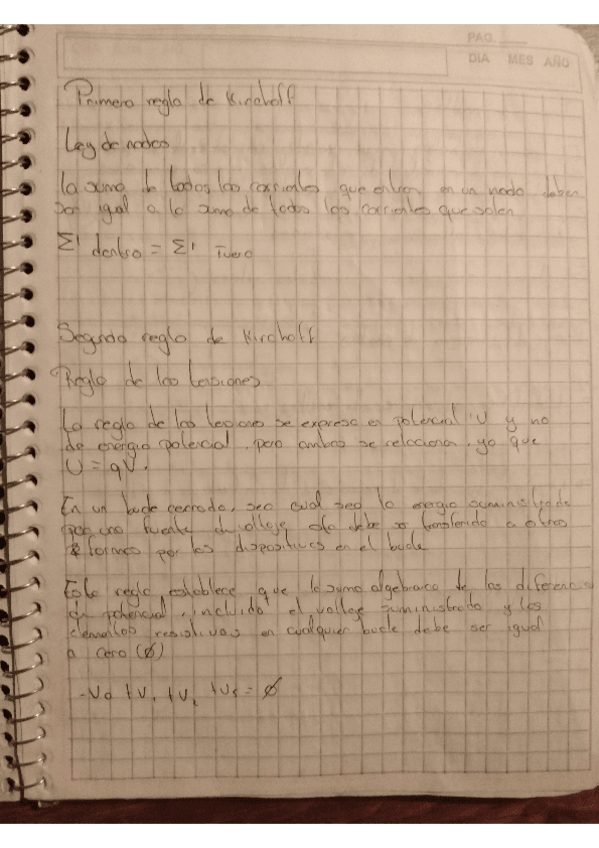 PAG.
DIA MES AÑO
Primera regla de Kirchoff
Ley de nodos
La suma de todas las corrientes que entren en un nodo deben
ser igual a la suma de todas las corrientes que salen
ΣI dentro = ΣI fuera
Segunda regla de Kirchoff
Regla de las tensiones
La regla de las tensiones se expresa en potencial V y no
de energia potencial, pero ambas se relaciona, ya que
U = qV.
En un bucle cerrado, sea cual sea la energia suministrada
por una fuente de voltaje, esta debe ser transferida a otras
formas por los dispositivos en el bucle
Esta regla establece que la suma algebraica de las diferencias
de potencial, incluido el voltaje suministrado y los
elementos resistivos en cualquier bucle debe ser igual
a cero (Ø)
-Va + V₁ + V₂ + V₃ = Ø